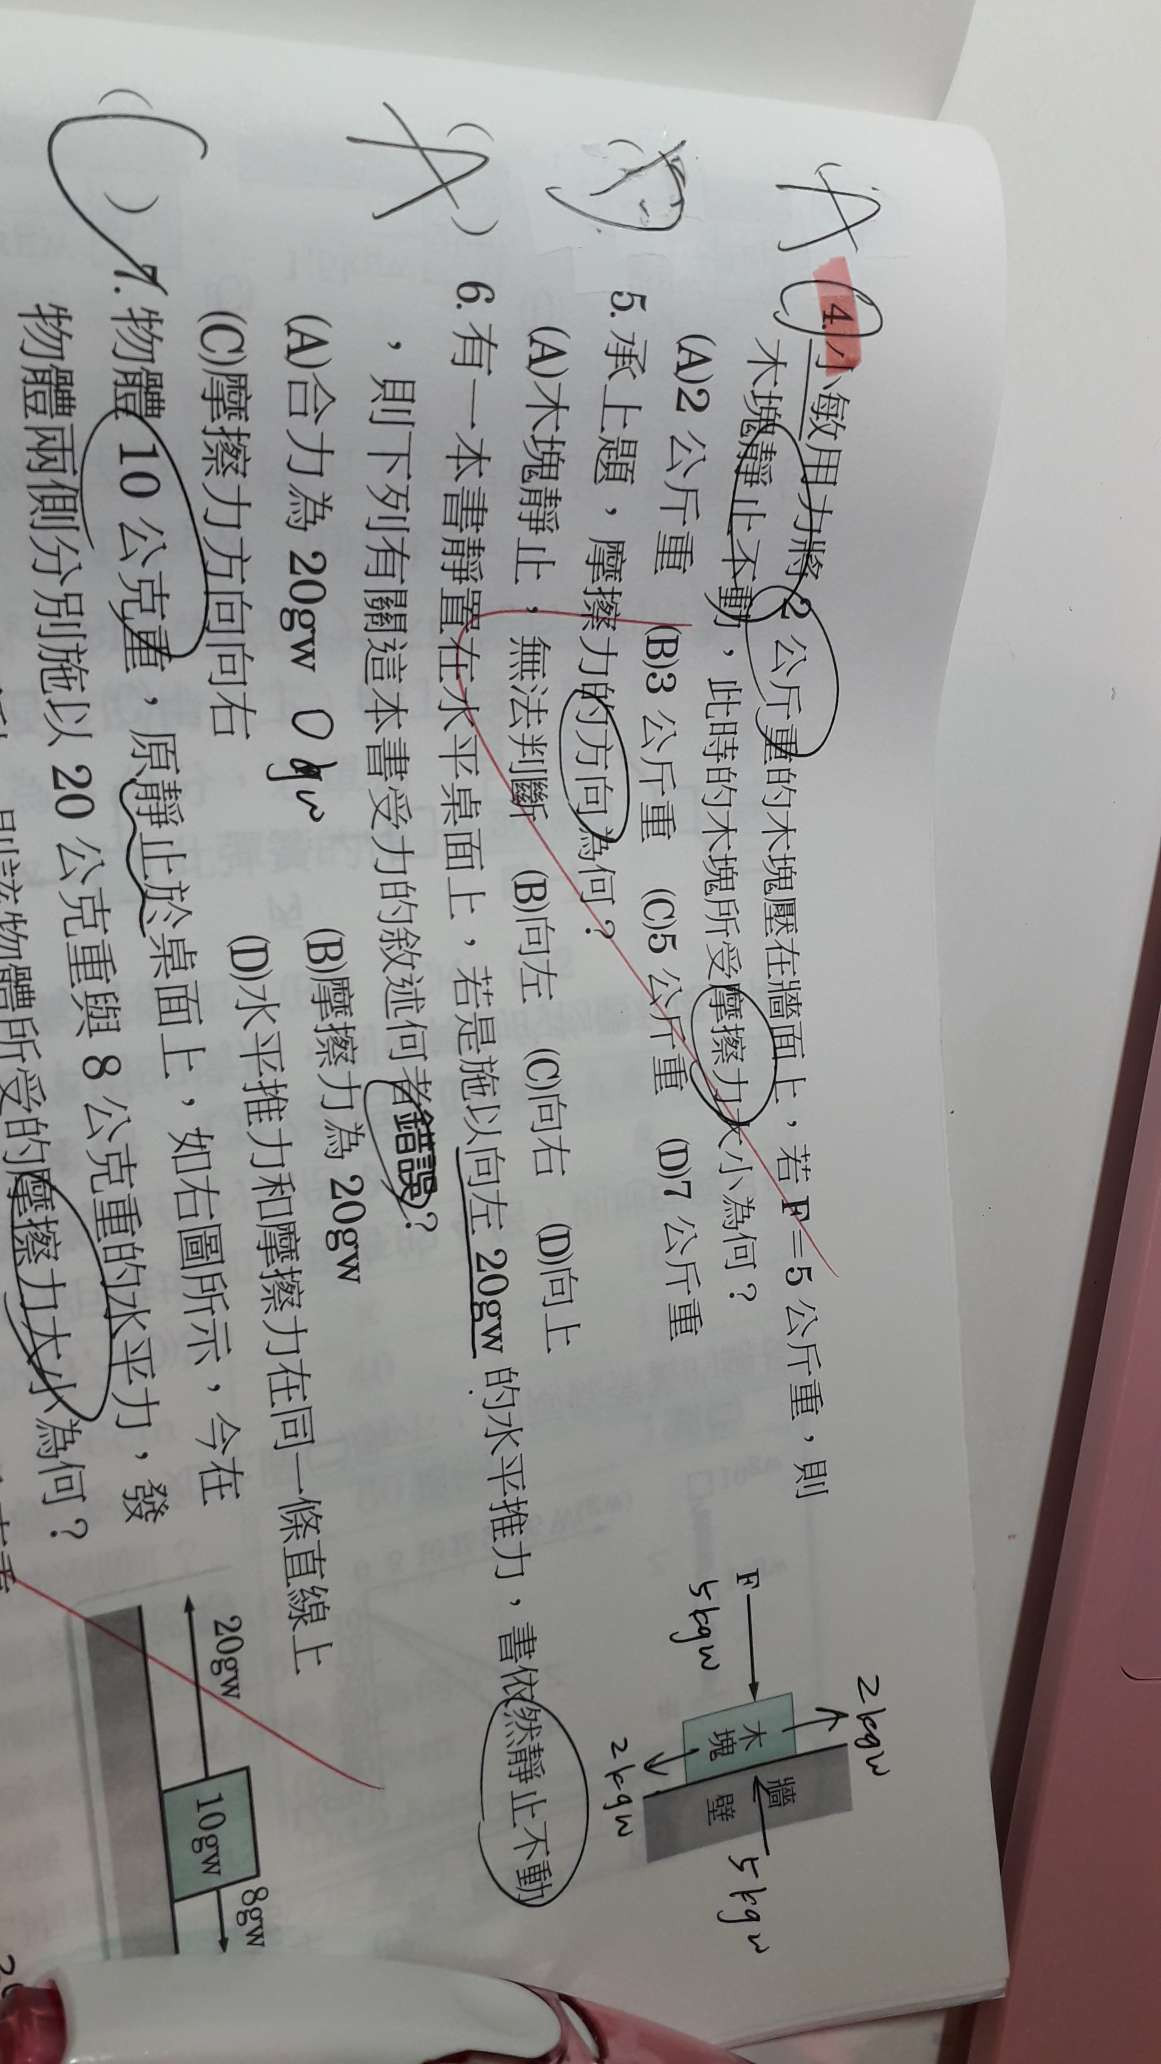 (A)4.小敏用力將2公斤重的木塊壓在牆面上，若F＝5公斤重，則
木塊靜止不動，此時的木塊所受摩擦力大小為何？
(A)2公斤重 (B)3公斤重 (C)5公斤重 (D)7公斤重
F
5kgw
木塊
牆壁
2kgw
2kgw
5kgw
5.承上題，摩擦力的方向為何？
(A)木塊靜止，無法判斷 (B)向左 (C)向右 (D)向上
(A)6.有一本書靜置在水平桌面上，若是施以向左20gw的水平推力，書依然靜止不動
，則下列有關這本書受力的敘述何者錯誤？
(A)合力為20gw 0gw (B)摩擦力為20gw
(C)摩擦力方向向右 (D)水平推力和摩擦力在同一條直線上
( )7.物體10公克重，原靜止於桌面上，如右圖所示，今在
物體兩側分別施以20公克重與8公克重的水平力，發
則該物體所受的摩擦力大小為何？
20gw
10gw
8gw